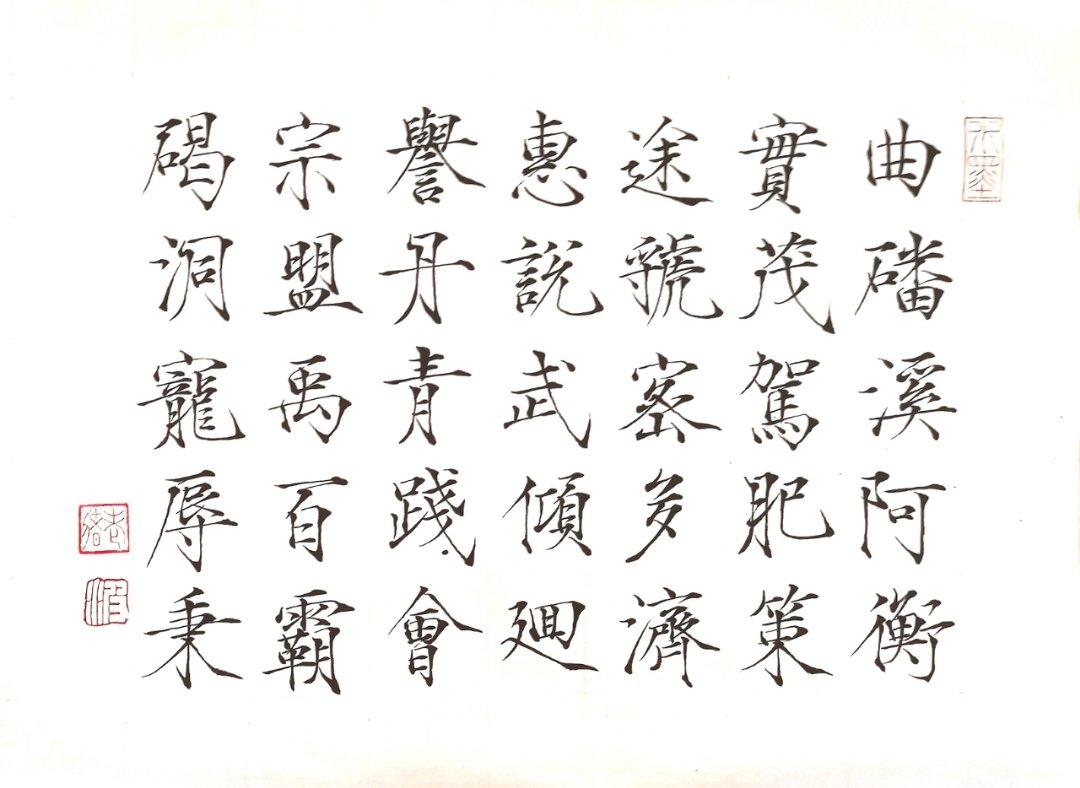 曲磻溪阿衡
實茂駕肥策
途虢密多濟
惠說武傾廻
譽丹青踐會
宗盟禹百霸
碣洞寵辱秉